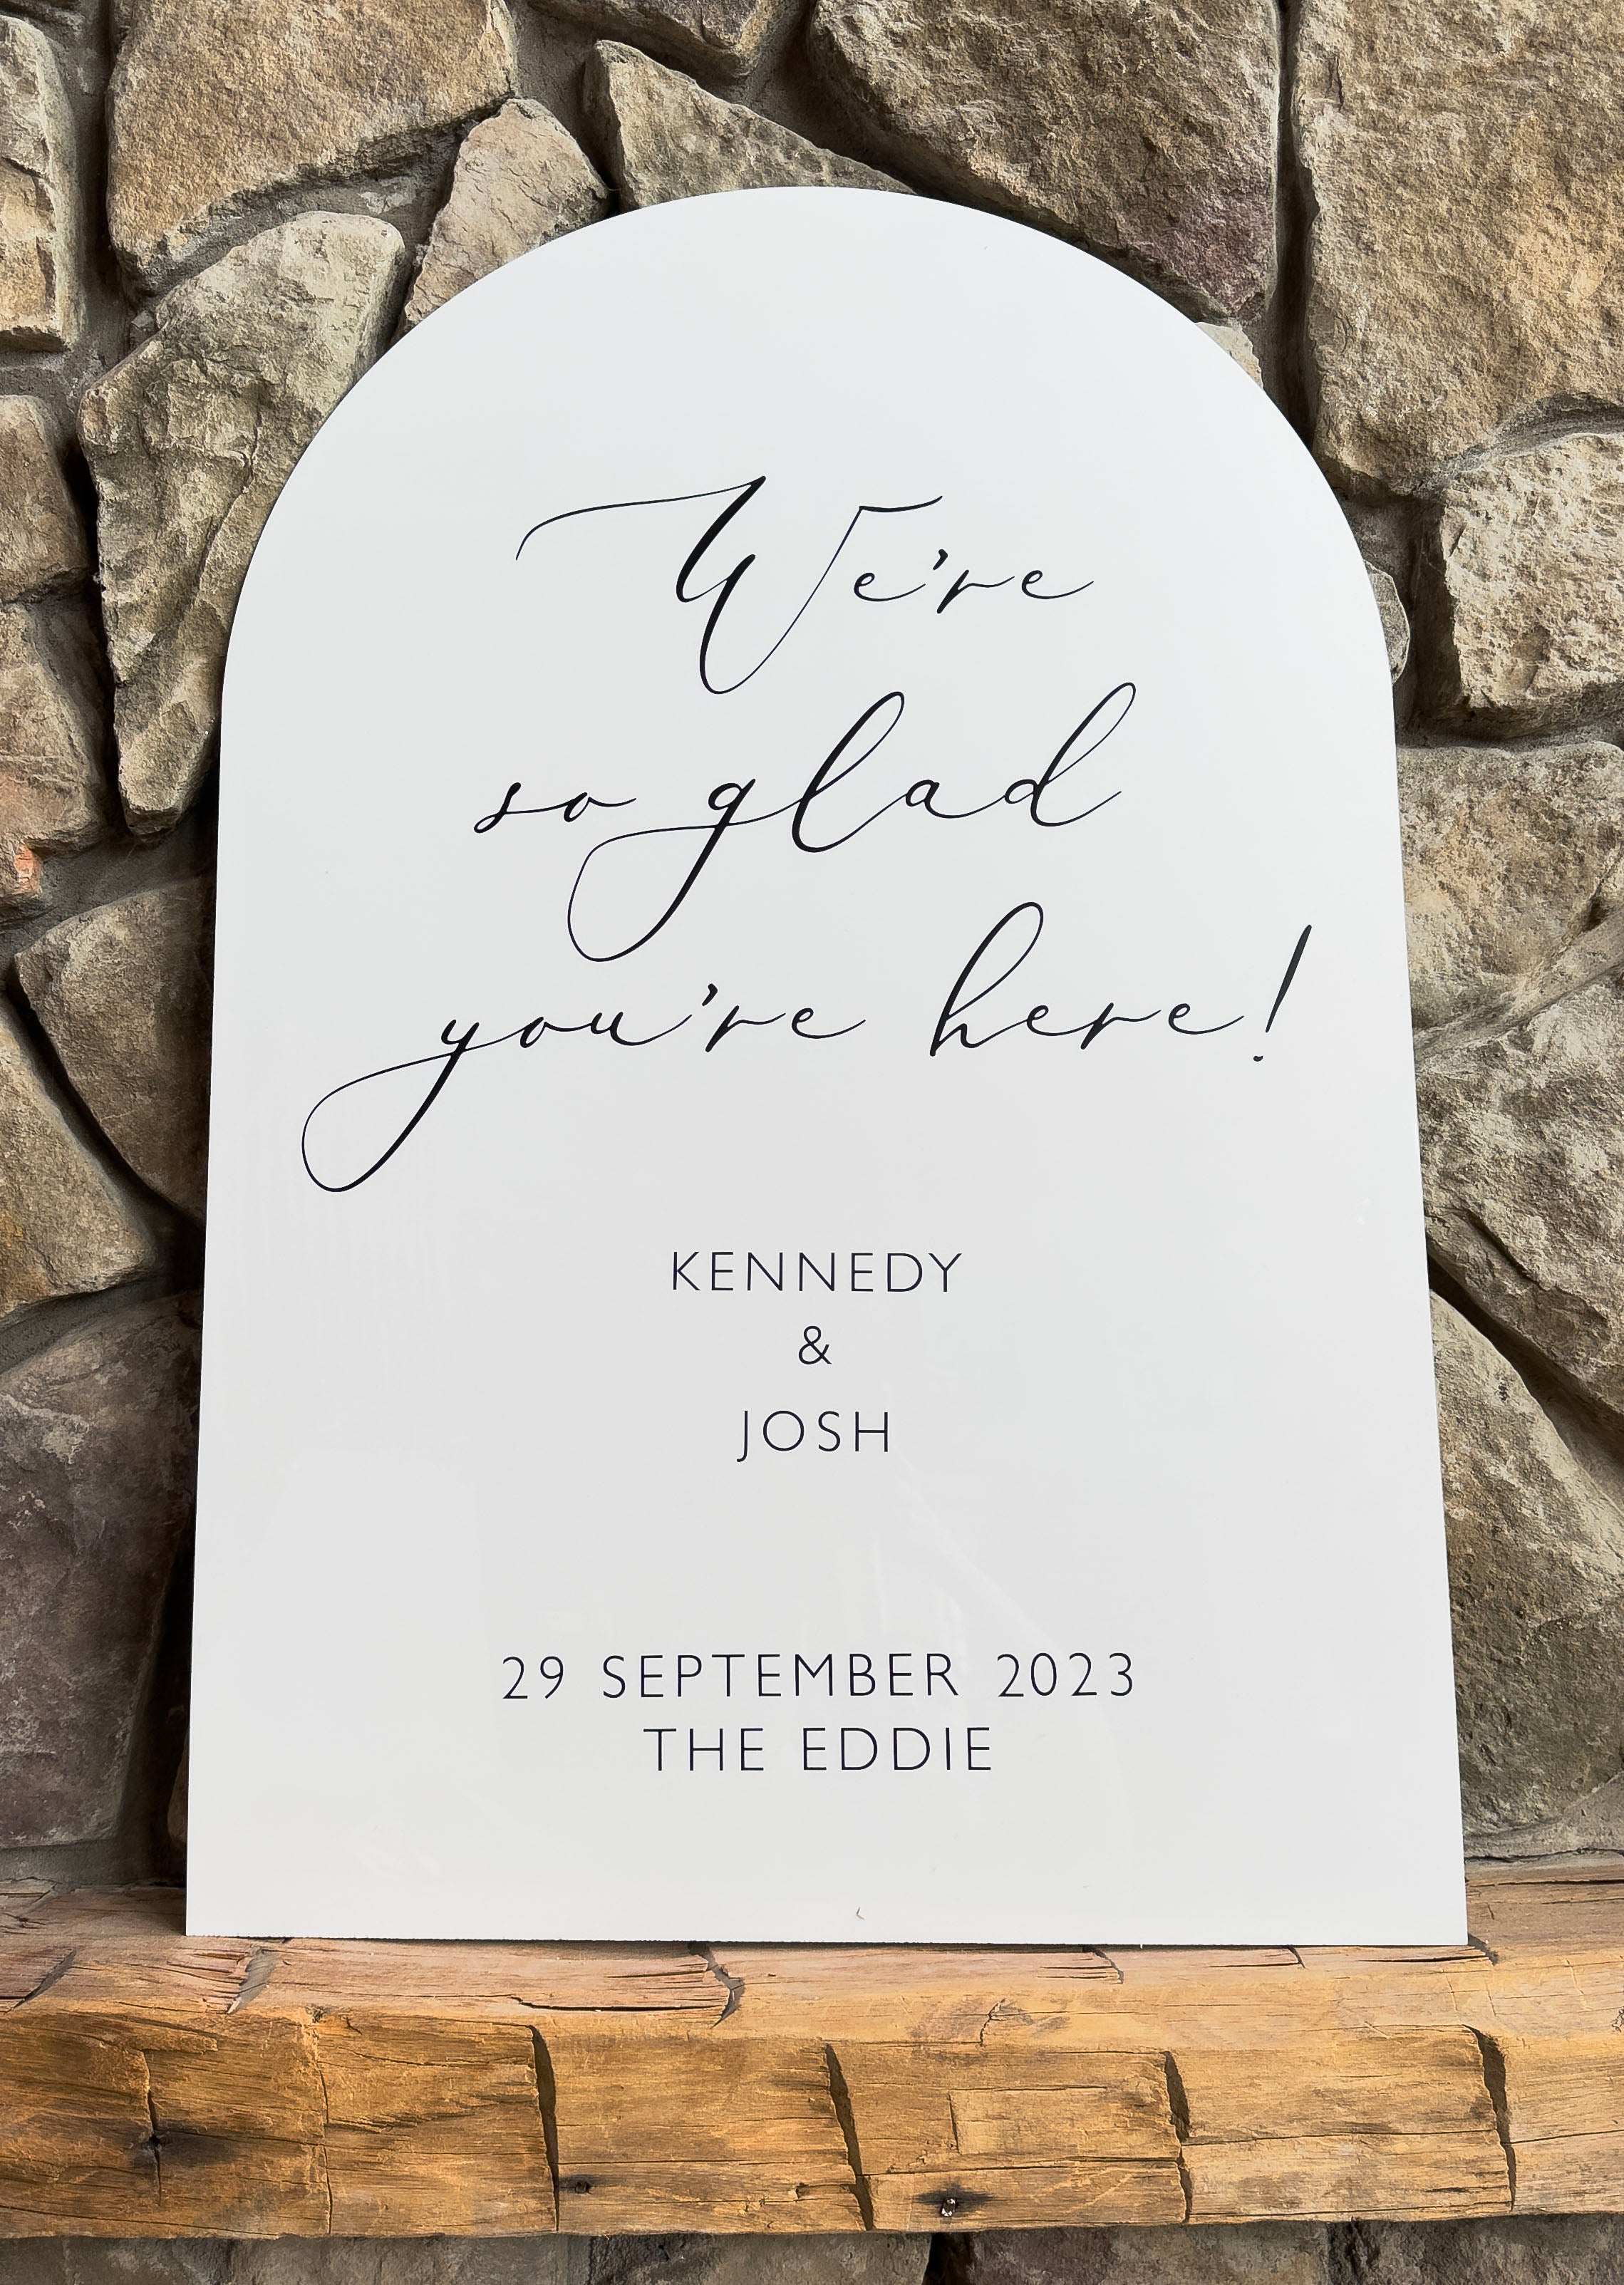 We're
so glad
you're here!
KENNEDY
&
JOSH
29 SEPTEMBER 2023
THE EDDIE